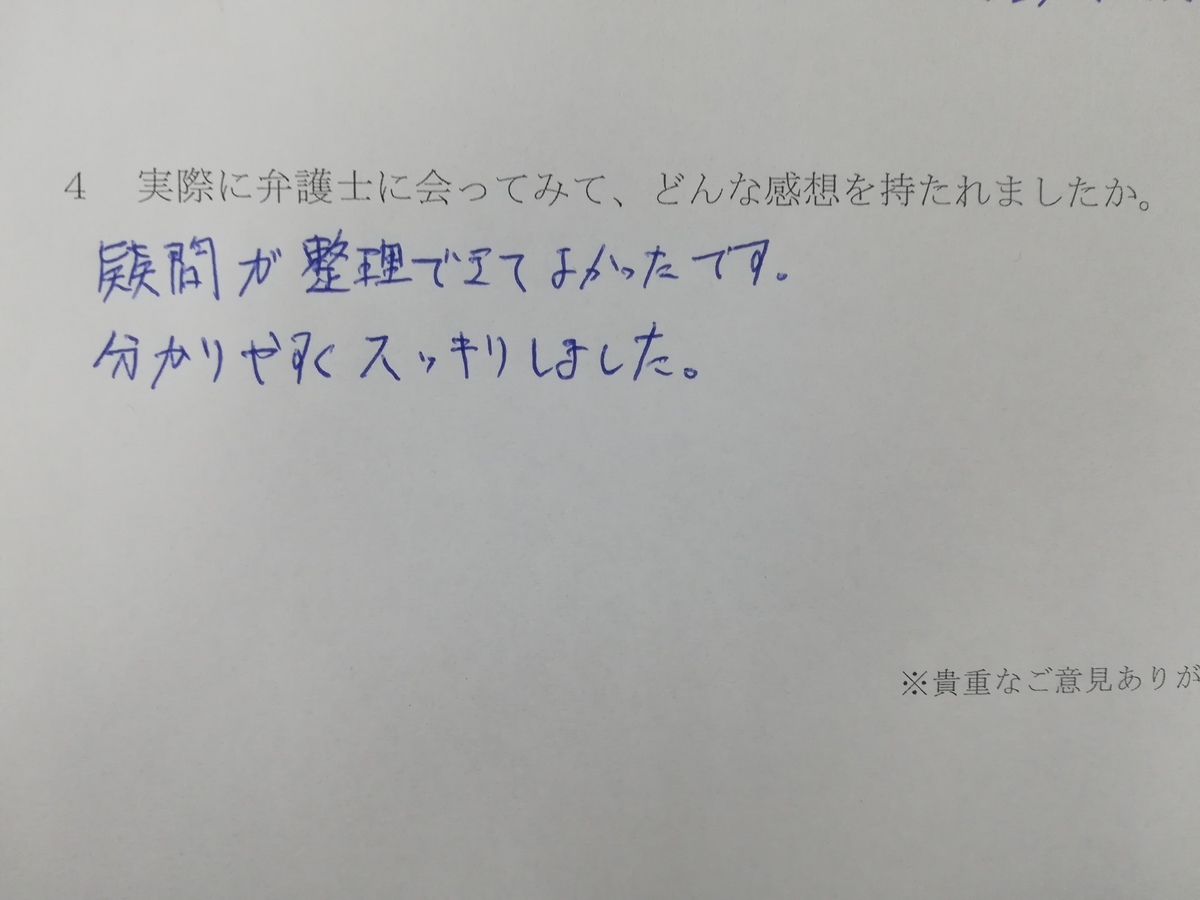 4 実際に弁護士に会ってみて、どんな感想を持たれましたか。
疑問が整理できてよかったです。
分かりやすくスッキリしました。
※貴重なご意見ありが